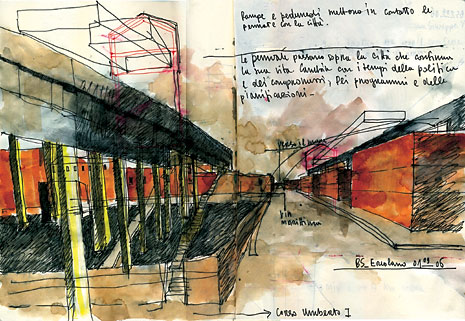 Rampe e pedonali mettono in contatto le
pensate con la città.
Le pensate passano sopra la città che continua
la sua vita cambia con i tempi della politica
e dei compromessi, dei programmi e delle
pianificazioni –
VIA
marittima
BS Ercolano 01 06
Corso Umberto I